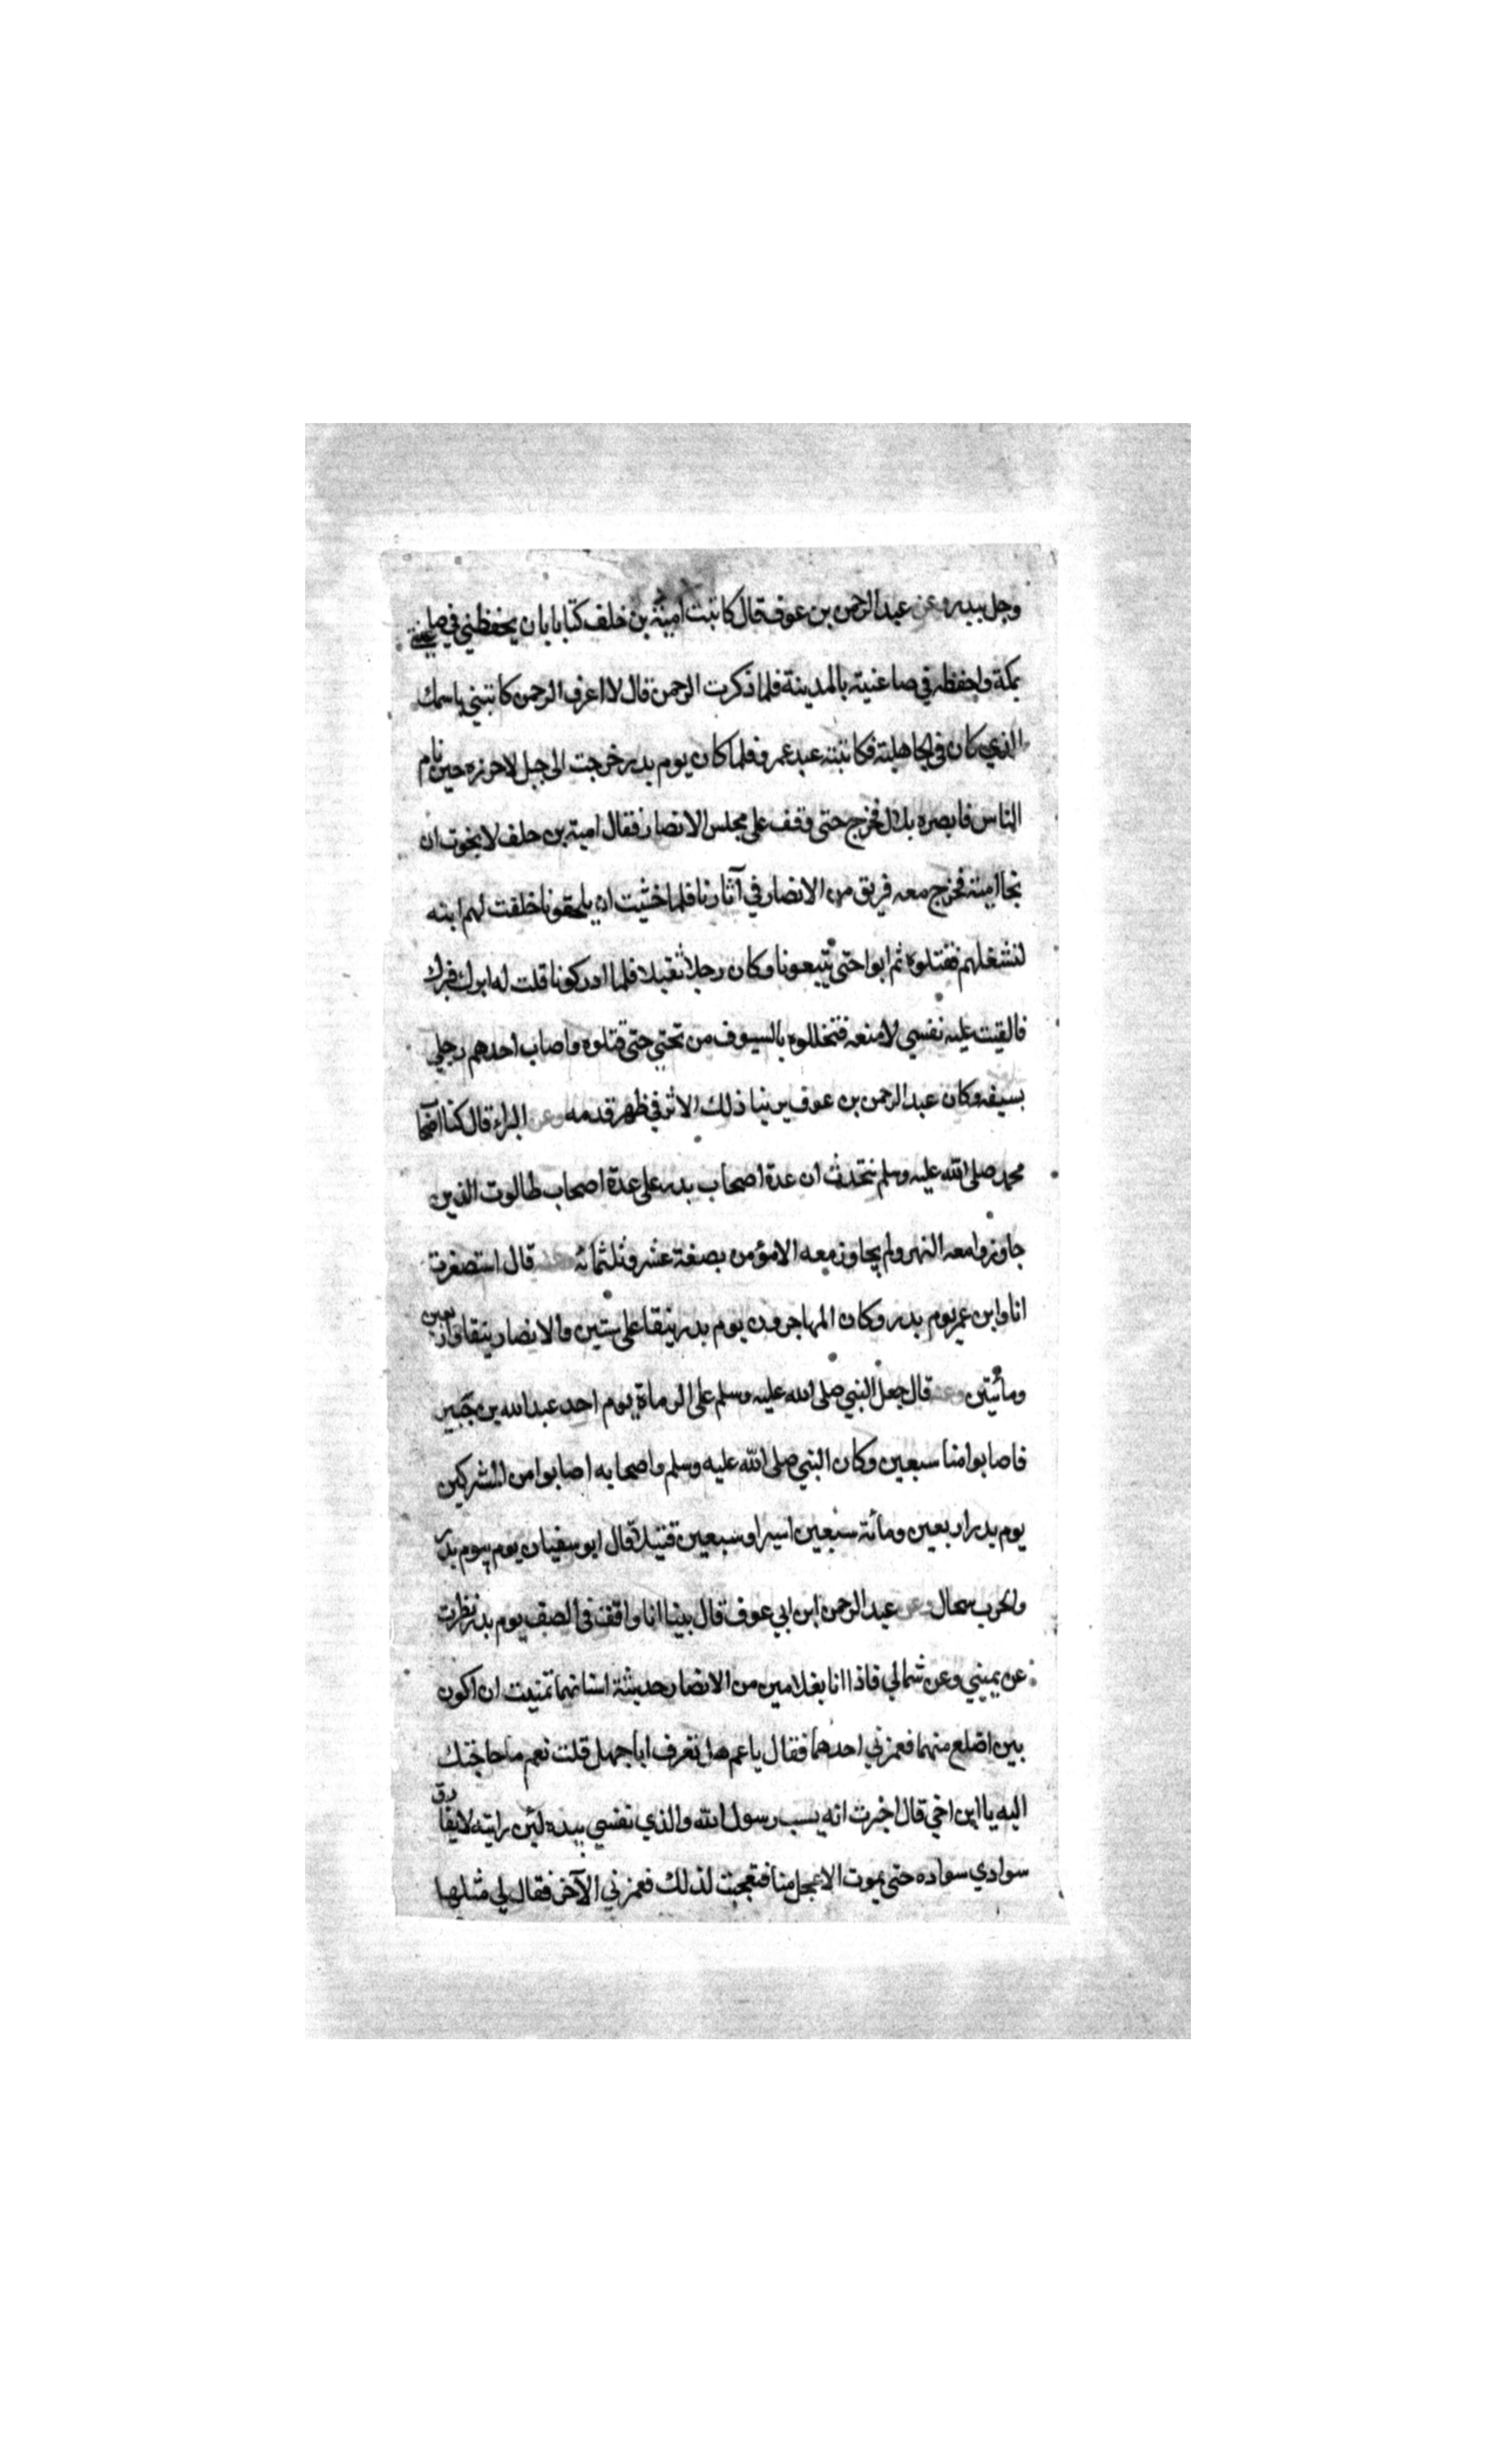 وجل ببدر وعن عبد الرحمن بن عوف قال كاتبت امية بن خلف كتابا بان يحفظني في صاغيتي
بمكة واحفظه في صاغيته بالمدينة فلما ذكرت الرحمن قال لا اعرف الرحمن كاتبني باسمك
الذي كان في الجاهلية فكاتبته عبد عمرو فلما كان يوم بدر خرجت الى جبل لاحرزه حين نام
الناس فابصره بلال فخرج حتى وقف على مجلس الانصار فقال امية بن خلف لا نجوت ان
نجا امية فخرج معه فريق من الانصار في آثارنا فلما خشيت ان يلحقونا خلفت لهم ابنه
لنشغلهم فقتلوه ثم ابوا حتى يتبعونا وكان رجلا ثقيلا فلما ادركونا قلت له ابرك فبرك
فالقيت عليه نفسي لامنعه فتخللوه بالسيوف من تحتي حتى قتلوه واصاب احدهم رجلي
بسيفه وكان عبد الرحمن بن عوف يرينا ذلك الاثر في ظهر قدمه وعن البراء قال كنا اصحا
محمد صلى الله عليه وسلم نتحدث ان عدة اصحاب بدر على عدة اصحاب طالوت الذين
جاوزوا معه النهر ولم يجاوز معه الا مؤمن بضعة عشر وثلثمائة وعنه قال استصغرت
انا وابن عمر يوم بدر وكان المهاجرون يوم بدر نيفا على ستين والانصار نيفا واربعين
ومأئتين وعنه قال جعل النبي صلى الله عليه وسلم على الرماة يوم احد عبد الله بن جبير
فاصابوا منا سبعين وكان النبي صلى الله عليه وسلم واصحابه اصابوا من المشركين
يوم بدر اربعين ومأئة سبعين اسيرا وسبعين قتيلا قال ابو سفيان يوم بيوم بدر
والحرب سجال وعن عبد الرحمن ابن ابي عوف قال بينا انا واقف في الصف يوم بدر نظرت
عن يميني وعن شمالي فاذا انا بغلامين من الانصار حديثة اسنانهما تمنيت ان اكون
بين اضلع منهما فغمزني احدهما فقال يا عم هل تعرف ابا جهل قلت نعم ما حاجتك
اليه يا ابن اخي قال اخبرت انه يسب رسول الله والذي نفسي بيده لئن رايته لا يفارق
سوادي سواده حتى يموت الاعجل منا فتعجبت لذلك فغمزني الآخر فقال لي مثلها